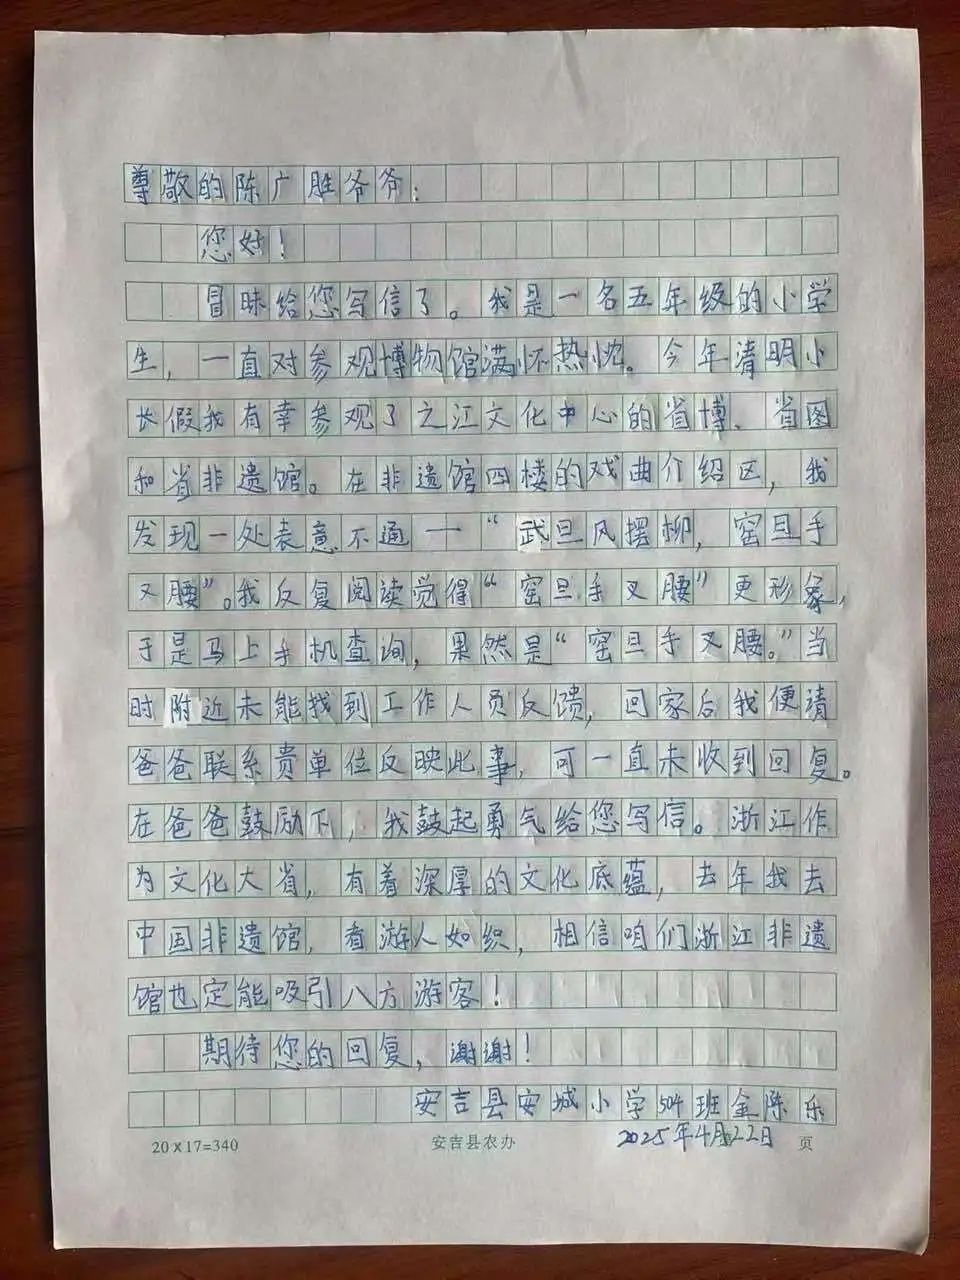 尊敬的陈广胜爷爷：
您好！
冒昧给您写信了。我是一名五年级的小学
生，一直对参观博物馆满怀热忱。今年清明小
长假我有幸参观了之江文化中心的省博、省图
和省非遗馆。在非遗馆四楼的戏曲介绍区，我
发现一处表意不通一“武旦风摆柳，窑旦手
叉腰”。我反复阅读觉得“窑旦手叉腰”更形象，
于是马上手机查询，果然是“窑旦手叉腰。”当
时附近未能找到工作人员反馈，回家后我便请
爸爸联系贵单位反映此事，可一直未收到回复。
在爸爸鼓励下，我鼓起勇气给您写信。浙江作
为文化大省，有着深厚的文化底蕴，去年我去
中国非遗馆，看游人如织，相信咱们浙江非遗
馆也定能吸引八方游客！
期待您的回复，谢谢！
安吉县安城小学504班金陈乐
20×17=340 安吉县农办 2025年4月22日 页